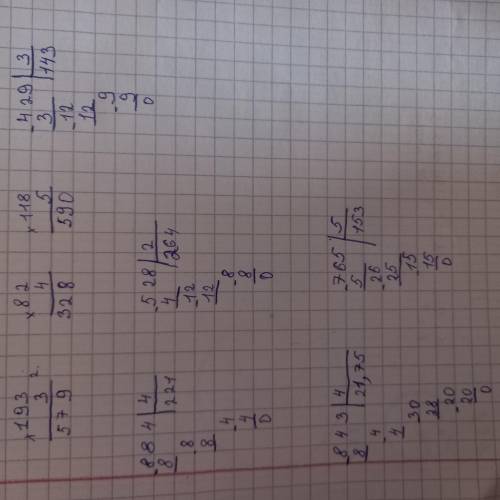 ×193
3 2
579
×82
4
328
×118
5
590
-429 | 3
3 | 143
-12
12
-9
9
0
-884 | 4
8 | 221
-8
8
-4
4
0
-528 | 2
4 | 264
-12
12
-8
8
0
-843 | 4
8 | 21,75
-4
4
-30
28
-20
20
0
-765 | 5
5 | 153
-26
25
-15
15
0